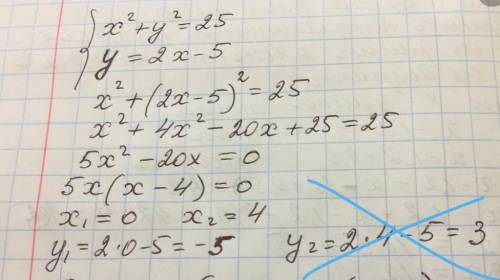 x² + y² = 25
y = 2x - 5
x² + (2x - 5)² = 25
x² + 4x² - 20x + 25 = 25
5x² - 20x = 0
5x(x - 4) = 0
x₁ = 0 x₂ = 4
y₁ = 2·0 - 5 = -5 y₂ = 2·4 - 5 = 3